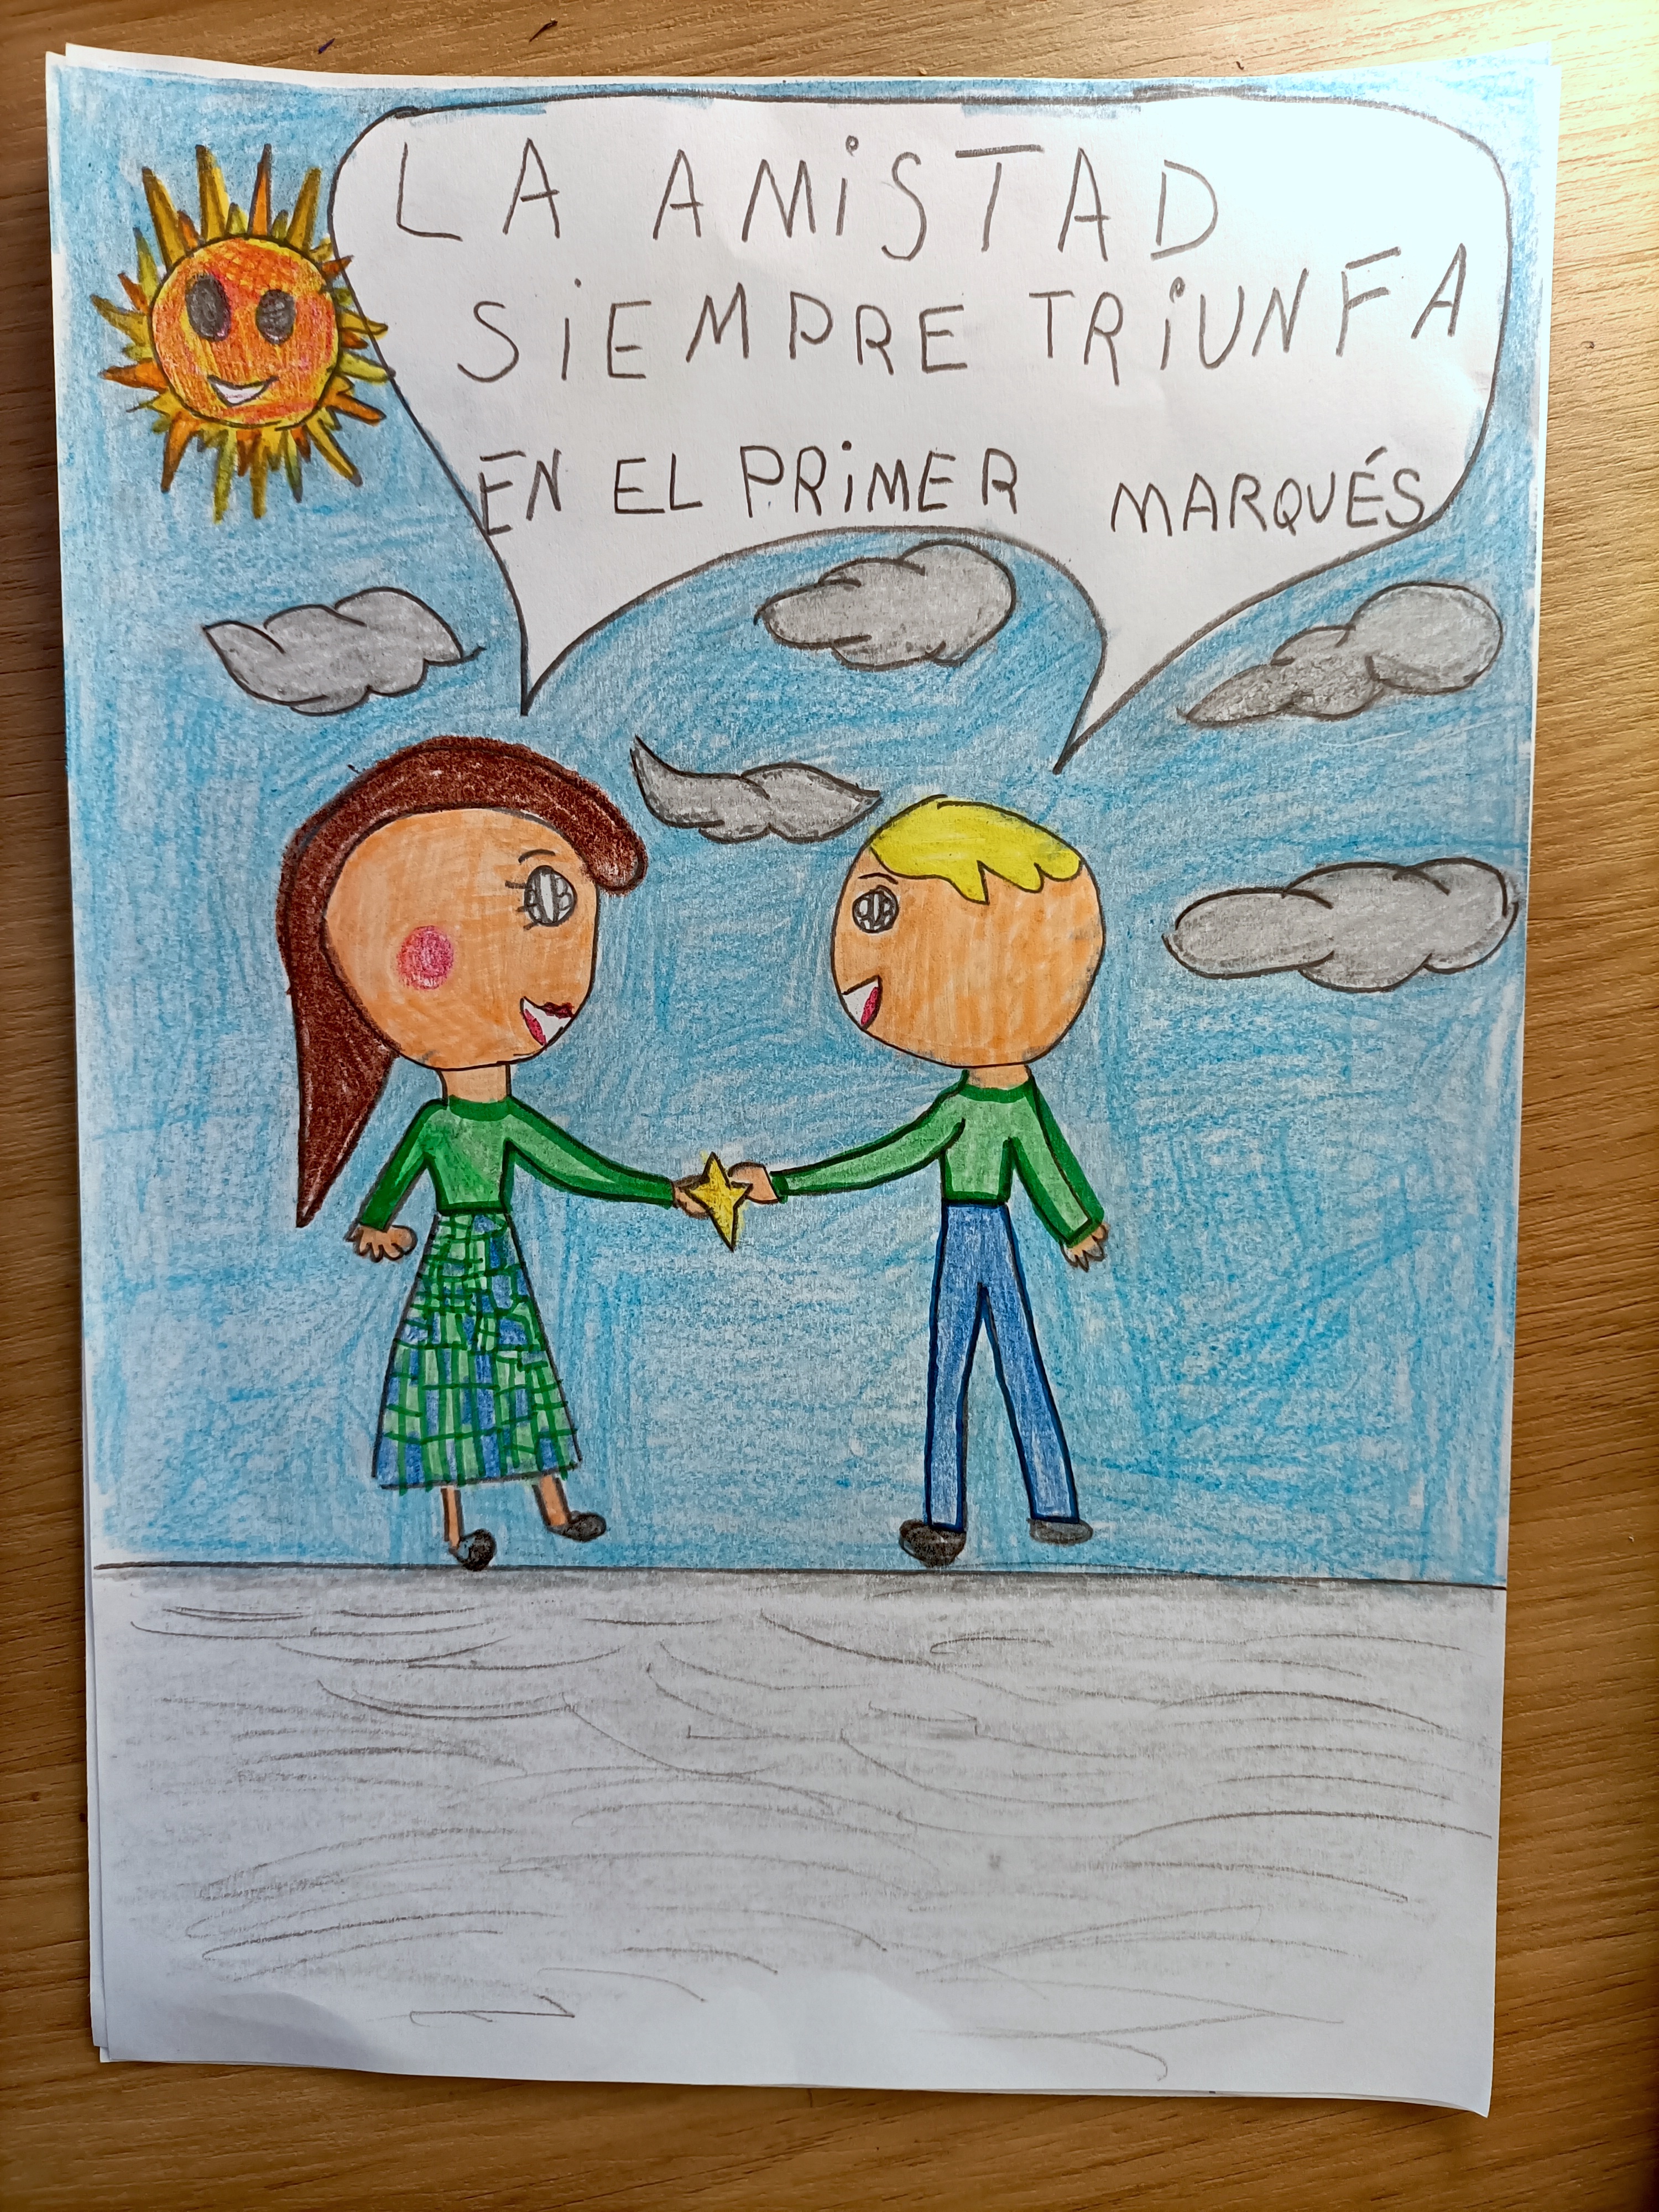 LA AMiSTAD
SiEMPRE TRiUNFA
EN EL PRiMER MARQUÉS